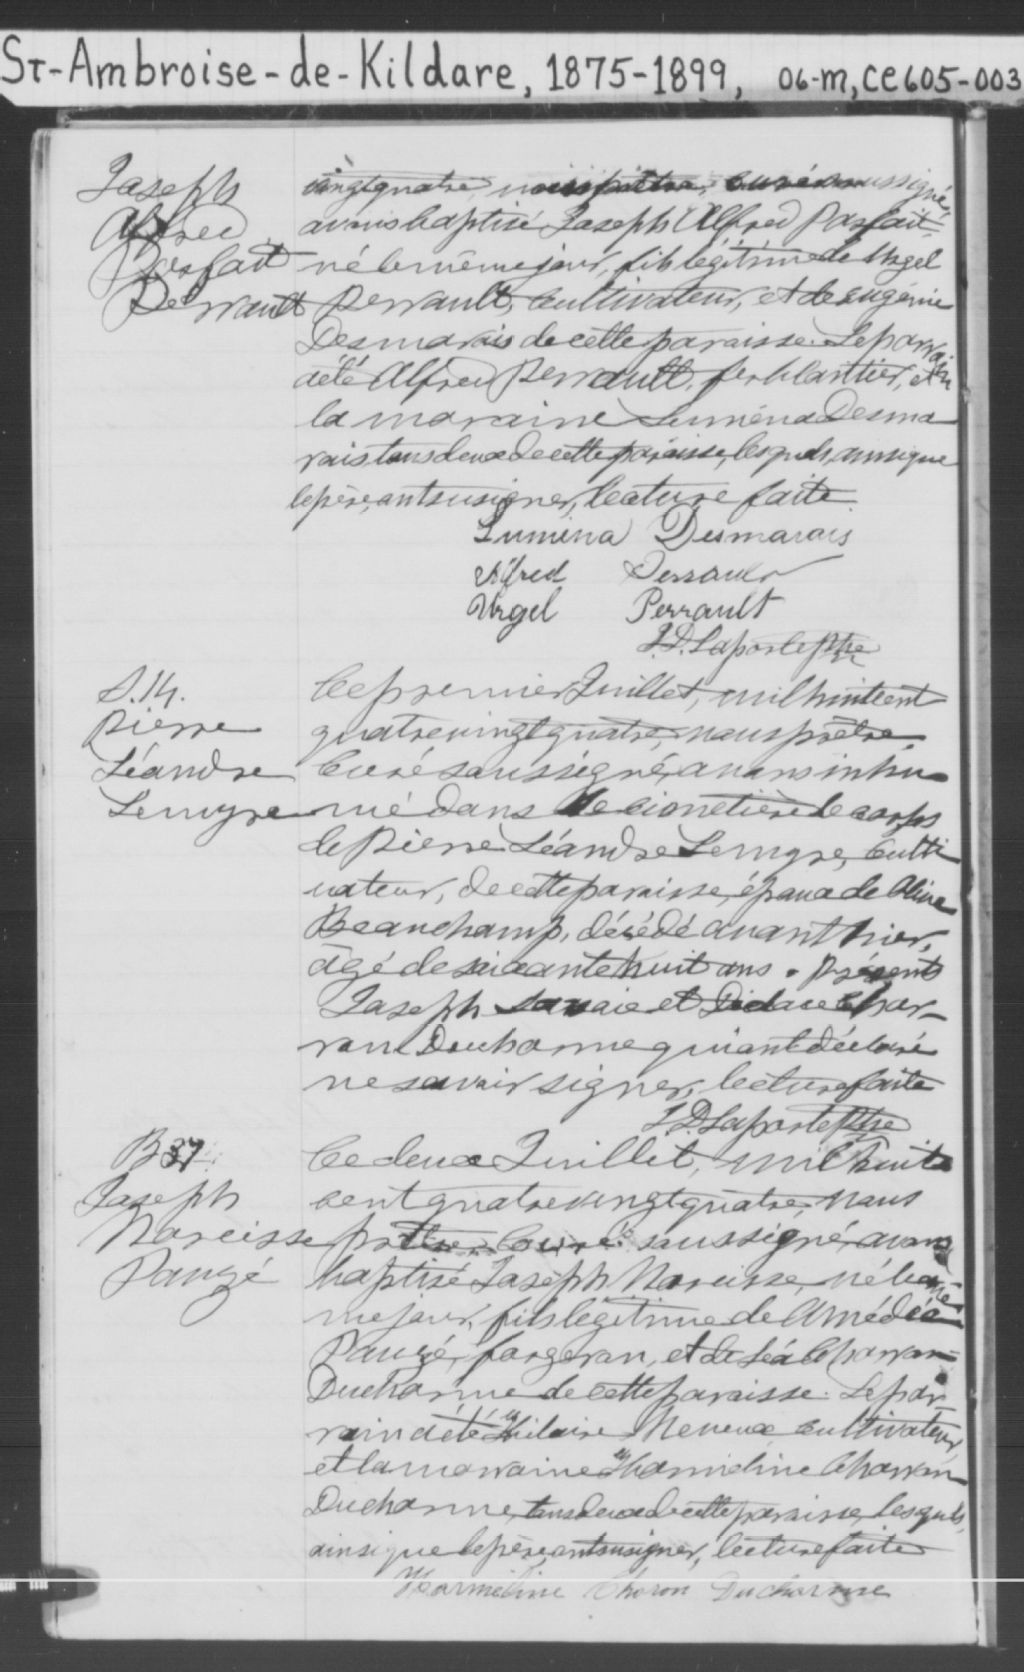 St-Ambroise-de-Kildare, 1875-1899, 06-M, CE605-003
Joseph
Alfred
Parfait
Perrault
vingtquatre, nous prêtre, curé soussigné,
avons baptisé Joseph Alfred Parfait
né le même jour, fils légitime de Urgel
Perrault, cultivateur, et de Eugénie
Desmarais de cette paroisse. Le parrain
a été Alfred Perrault, ferblantier, et
la marraine Luména Desma
rais tous deux de cette paroisse, lesquels, ainsi que
le père, ont su signer, lecture faite.
Lumina Desmarais
Alfred Perrault
Urgel Perrault
J.D. Laporte Ptre
S.14.
Pierre
Léandre
Lemyre
Ce premier Juillet, mil huit cent
quatrevingtquatre, nous prêtre,
Curé soussigné, avons inhu
mé dans le cimetière le corps
de Pierre Léandre Lemyre, culti
vateur, de cette paroisse, époux de Olive
Beauchamp, décédé avant hier,
âgé de soixante huit ans. Présents
Joseph Savoie et Didace Char-
ron Ducharme qui ont déclaré
ne savoir signer, lecture faite
J.D. Laporte Ptre
B 37
Joseph
Narcisse
Pauzé
Ce deux Juillet, mil huit
cent quatrevingtquatre, nous
prêtre Curé soussigné, avons
baptisé Joseph Narcisse, né le mê
me jour, fils légitime de Amédée
Pauzé, forgeron, et de Léa Charron
Ducharme de cette paroisse. Le par-
rain a été Hilaire Neveux cultivateur,
et la marraine Harmeline Charron
Ducharme, tous deux de cette paroisse, lesquels,
ainsi que le père, ont su signer, lecture faite
Harmeline Choron Ducharme